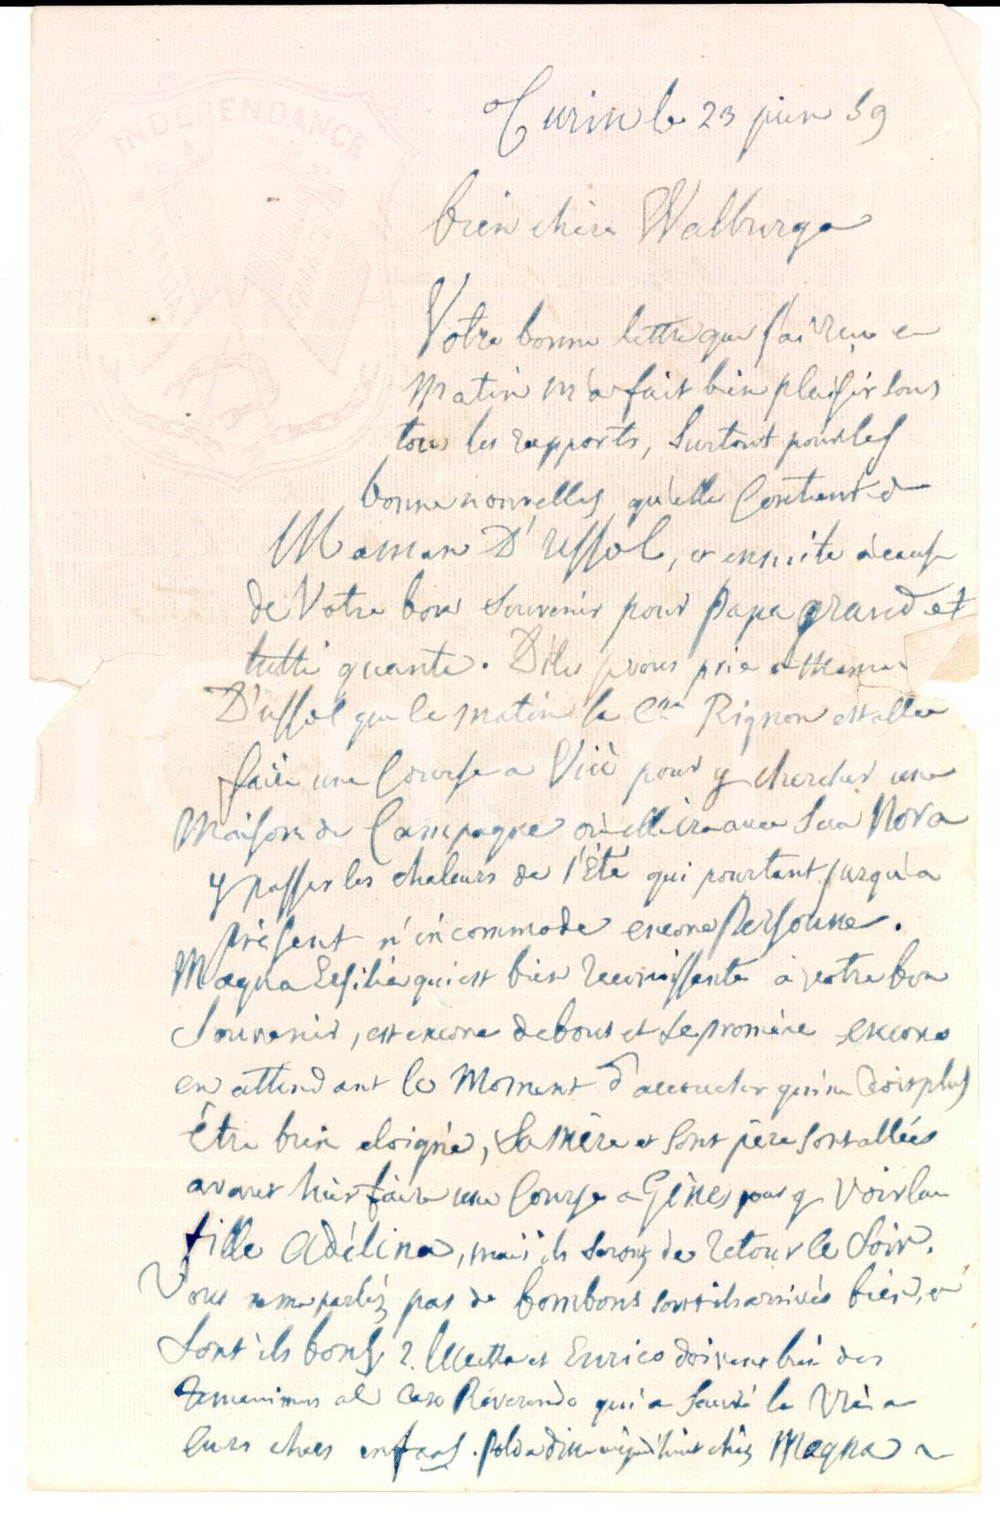 INDEPENDANCE
ITALIA
FRANCE
Turin le 23 juin 59
bien chère Walburga
Votre bonne lettre que j'ai reçue ce
Matin m'a fait bien plaisir sous
tous les rapports, surtout pour les
bonne nouvelles qu'elle contient de
Maman D'Ussol, et ensuite à cause
de Votre bon souvenir pour Papa grand et
tutti quante. Dites je vous prie a Maman
D'Ussol que le matin la Csse Rignon est allée
faire une Course a Viù pour y chercher une
Maison de Campagne où elle ira avec sua Nora
y passer les chaleurs de l'Été qui pourtant jusqu'a
présent n'incommode encore personne.
Magna Ersilia qui est bien reconnaissente à votre bon
Souvenir, est encore debout et se promène encore
en attendant le Moment d'accoucher qui ne doit plus
Être bien eloigné, sa mère et sont père sont allées
avant hier faire une Course a Gênes pour y voir leur
fille Adélina, mais ils seront de retour le Soir.
Vous ne me parléz pas de bombons sont ils arrivés bien, et
Sont ils bons? et Enrico doivent bien des
al Caro Reverendo qui a sauvé la Vie a
leurs chers enfans. chéz Magna